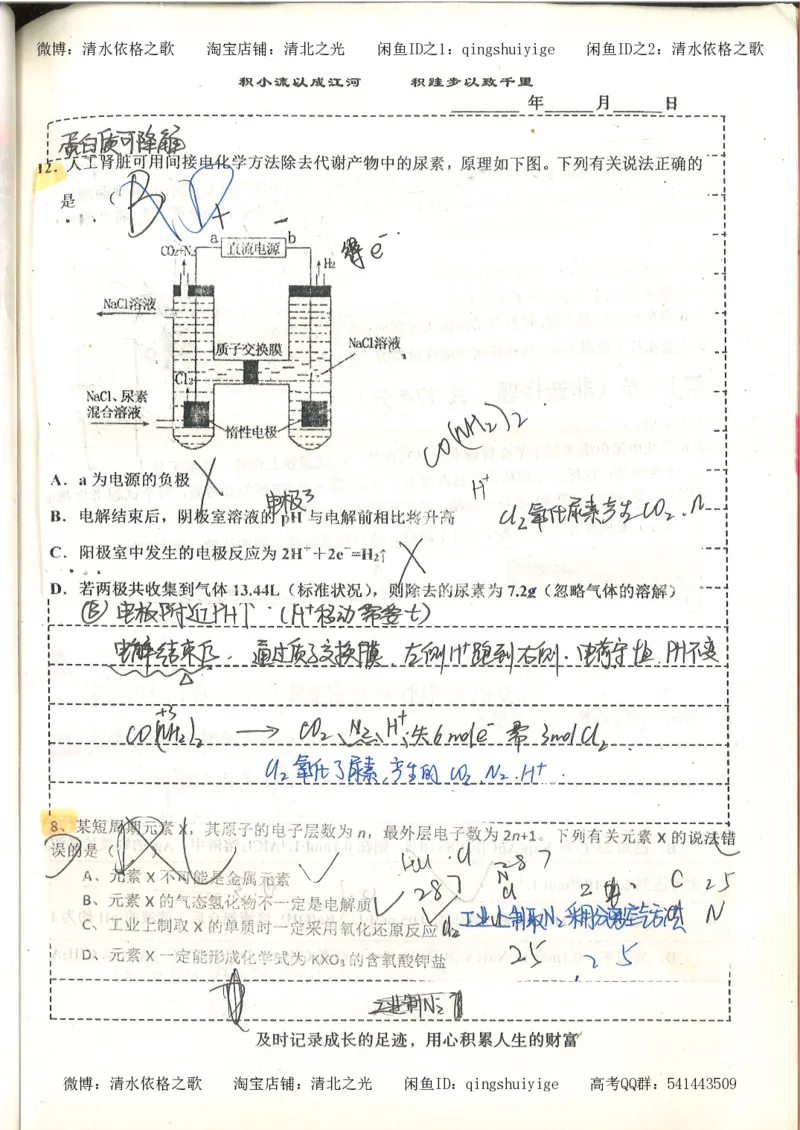 微博：清水依格之歌 淘宝店铺：清北之光 闲鱼ID之1：qingshuiyige 闲鱼ID之2：清水依格之歌
积小流以成江河 积跬步以致千里
年 月 日
蛋白质可降解
12．人工肾脏可用间接电化学方法除去代谢产物中的尿素，原理如下图。下列有关说法正确的
是 （B）
+ −
a 直流电源 b
CO₂+N₂
H₂
得e⁻
NaCl溶液
质子交换膜
NaCl溶液
Cl₂
NaCl、尿素
混合溶液
惰性电极
CO(NH₂)₂
A．a 为电源的负极
H⁺
电极3
B．电解结束后，阴极室溶液的 pH 与电解前相比将升高
Cl₂氧化尿素产生CO₂、N
C．阳极室中发生的电极反应为 2H⁺＋2e⁻=H₂↑
D．若两极共收集到气体 13.44L（标准状况），则除去的尿素为 7.2g（忽略气体的溶解）
(B) 电极附近PH↑ （H⁺移动需要t）
电解结束后，通过质子交换膜 左侧H⁺跑到右侧，电荷守恒，PH不变
+3
CO(NH₂)₂ → CO₂、N₂、H⁺，失6mole 需3molCl₂
Cl₂氧化了尿素，产生的CO₂、N₂、H⁺
8、某短周期元素 X，其原子的电子层数为 n，最外层电子数为 2n+1。下列有关元素 X 的说法错
误的是（
Cl 287
A、元素 X 不可能是金属元素
N
C 25
B、元素 X 的气态氢化物不一定是电解质
287
Cl
N
C、工业上制取 X 的单质时一定采用氧化还原反应
Cl₂
工业上制取N₂采用分离空气方法
D、元素 X 一定能形成化学式为 KXO₃ 的含氧酸钾盐
25
25
工业制N₂
及时记录成长的足迹，用心积累人生的财富
微博：清水依格之歌 淘宝店铺：清北之光 闲鱼ID：qingshuiyige 高考QQ群：541443509